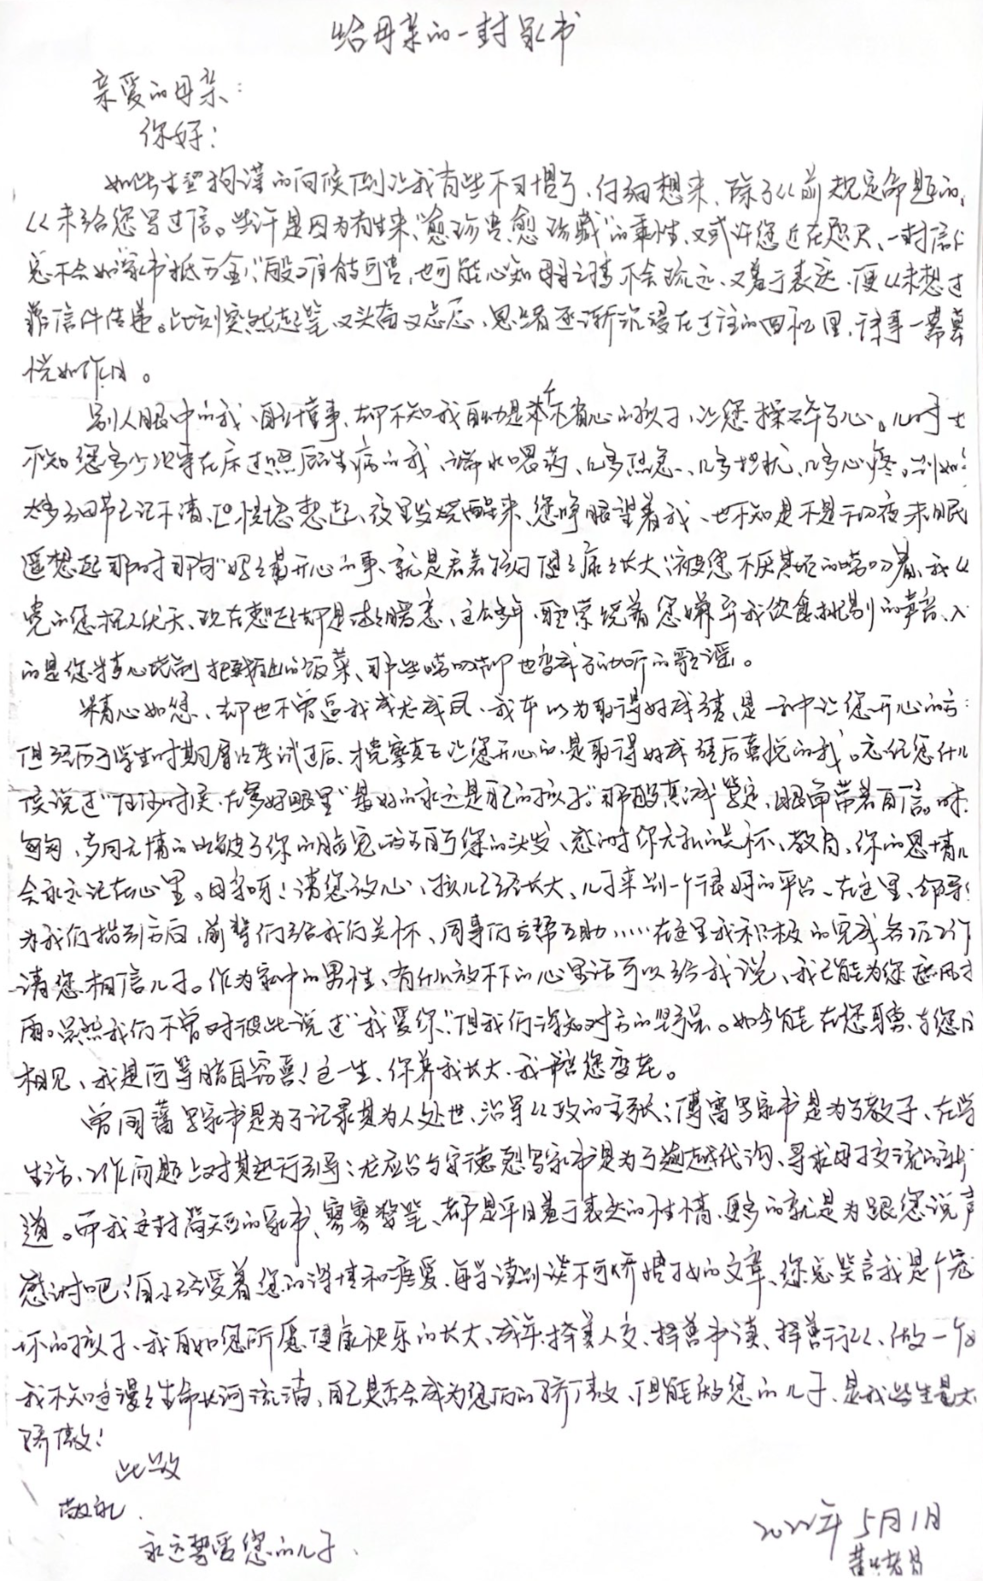 给母亲的一封家书
亲爱的母亲:
你好!
如此生望拘谨的问候倒让我有些不习惯了,仔细想来,除了从前规定命题的,
从未给您写过信。些许是因为有生来"愈珍贵,愈珍藏"的秉性,又或许您近在咫尺,一封信
总不会如"家书抵万金"般难能可贵,也可能心知母之情不会疏远,又羞于表达,便从未想过
靠信件传递。此刻突然起笔,又头苗又忐忑,思绪逐渐沉浸在过往的回忆里,诸事一幕幕
恍如昨日。
别人眼中的我,一直懂事,却不知我自幼是个不省心的孩子,让您操碎了心。儿时
不知您多少次守在床边照顾生病的我,端水喂药,几多焦急、几多担忧、几多心疼。
太多细节已记不清,但恍惚想起,夜里发烧醒来,您睁眼望着我,也不知是不是一夜未眠
遥想起那时那句"妈妈最开心的事,就是看着孩子健健康康长大",被您不厌其烦的唠叨着,我
觉的您杞人忧天,现在想起却是暖意,这么多年,耳旁萦绕着您嫌弃我饮食挑剔的声音,入
的是您精心烧制的饭菜,那些唠叨却也变成了动听的歌谣。
精心如您,却也不曾逼我成龙成凤,我本以为取得好成绩,是一种让您开心的方
但经历了学生时期屡次考试过后,才觉察真正让您开心的,是取得好成绩后喜悦的我。忘记您什么
候说过"任何时候,在爹妈眼里,最好的永远是自己的孩子"那般真诚笃定,眼角带着自信。时
匆匆,岁月无情的划破了你的脸庞,染白了您的头发,感谢你无私的关怀、教育,你的恩情儿
会永远记在心里。母亲呀!请您放心,孩儿已经长大,儿子来到一个很好的平台,在这里,领导
为我们指引方向,前辈们给我们关怀,同事们互帮互助……在这里我积极的完成各项工作
请您相信儿子。作为家中的男性,有什么放不下的心里话可以给我说,我已能为您遮风挡
雨。虽然我们不曾对彼此说过"我爱你",但我们深知对方的坚强。如今能在您身旁,与您日
相见,我是何等暗自窃喜!这一生,你养我长大,我陪您变老。
曾国藩写家书是为了记录其为人处世、治军从政的主张;傅雷写家书是为了教子,在学
生活、工作问题上对其进行引导;龙应台与安德烈写家书是为了跨越代沟、寻求母子交流的新
道。而我这封简短的家书,寥寥数笔,都是平日羞于表达的性情,更多的就是为跟您说声
感谢吧!自小经受着您的深情和疼爱,每每读到谈不可娇惯孩子的文章,您总笑言我是个宠
坏的孩子,我自如您所愿,健康快乐的长大,成年,择善人交,择善书读,择善行从,做一个
我不知这漫漫生命长河流淌,自己是否会成为您们的骄傲,但能做您的儿子,是我此生最大
骄傲!
此致
敬礼
永远挚爱您的儿子
2022年5月1日